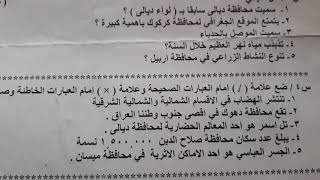 ١ - سميت محافظة ديالى سابقا بـ ( لواء ديالى ) ؟
٢ - يتمتع الموقع الجغرافي لمحافظة كركوك باهمية كبيرة ؟
٣ - سميت الموصل بالحدباء
٤ - تذبذب مياه نهر العظيم خلال السنة؟
٥ - تنوع النشاط الزراعي في محافظة اربيل ؟
س٤ / ضع علامة ( / ) امام العبارات الصحيحة وعلامة ( × ) امام العبارات الخاطئة وص
١ - تنتشر الهضاب في الاقسام الشمالية والشمالية الشرقية
٢ - تقع محافظة دهوك في اقصى جنوب وطننا العراق .
٣ - تل اسمر هو احد المعالم الحضارية لمحافظة ديالى.
٤ - يبلغ عدد سكان محافظة صلاح الدين ١٥٠٠٠٠٠ نسمة
٥ - الجسر العباسي هو احد الاماكن الاثرية في محافظة ميسان .